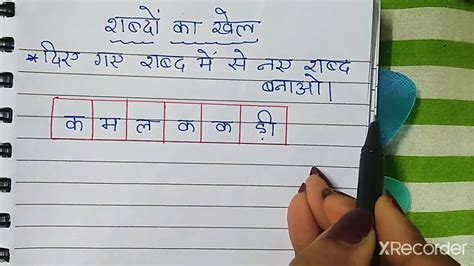 शब्दों का खेल
* दिए गए शब्द में से नए शब्द
बनाओ।
क म ल क क ड़ी
XRecorder